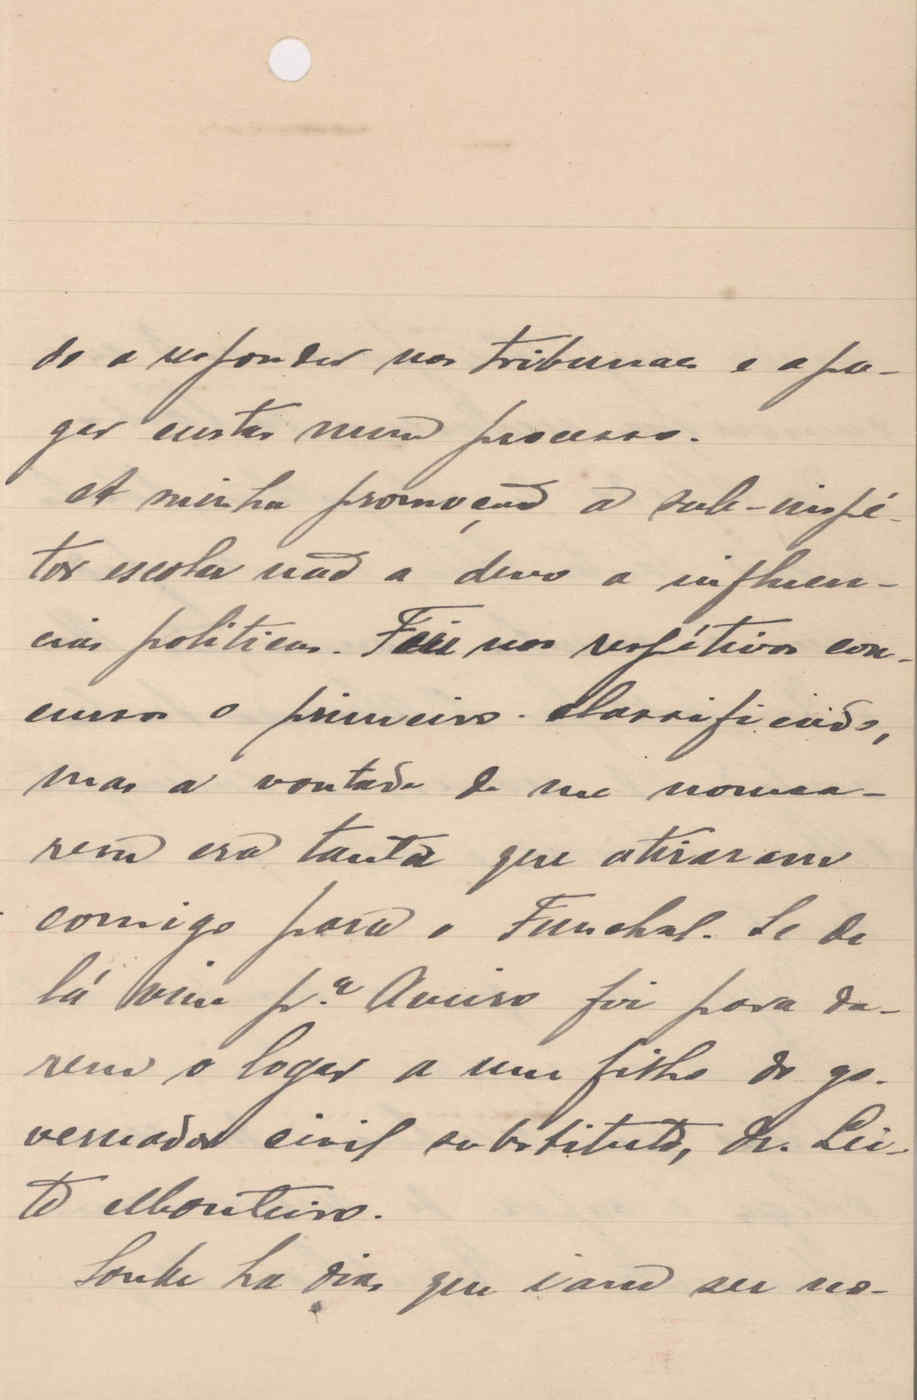 do a responder nos tribunaes e a pa-
gar custas num processo.
A minha promoção a sub-inspé-
tor escolar não a devo a influen-
cias politicas. Fui nos respétivos con-
cursos o primeiro classificado,
mas a vontade de me nomea-
rem era tanta que atiraram
comigo para o Funchal. Se de
lá vim p.ª Aveiro foi para da-
rem o logar a um filho do go-
vernador civil substituto, dr. Lei-
te Monteiro.
Soube ha dias que iam ser no-